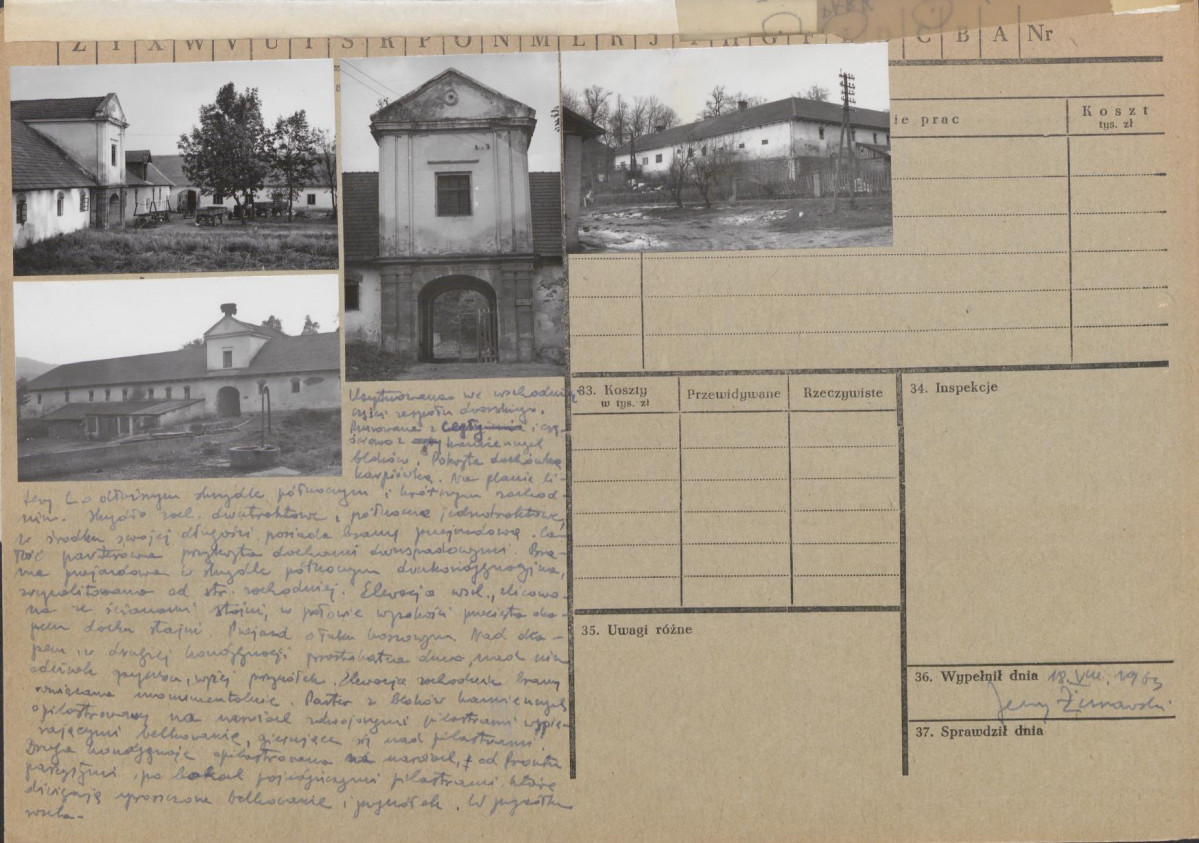 Z Y X W V U T S R P O N M L K J I H G F E D C B A Nr
ie prac
Koszt
tys. zł
Usytuowana we wschodniej
części zespołu dworskiego.
Murowana z i czę-
ściowo z kamiennych
bloków. Pokryta dachówką
karpiówką. Na planie li-
tery L o dłuższym skrzydle północnym i krótszym zachod-
nim. Skrzydło zach. dwutraktowe, północne jednotraktowe,
w środku swojej długości posiada bramę przejazdową. Ca-
łość parterowa przykryta dachami dwuspadowymi. Bra-
ma przejazdowa w skrzydle północnym dwukondygnacyjna,
zryzalitowana od str. zachodniej. Elewacja wsch. zlicowa-
na ze ścianami stajni, w połowie wysokości przecięta oka-
pem dachu stajni. Przejazd o łuku koszowym. Nad oka-
pem, w drugiej kondygnacji prostokątne okno, nad nim
odcinek gzymsu, wyżej przyczółek. Elewacja zachodnia bramy
rozwiązana monumentalnie. Parter z bloków kamiennych
opilastrowany na narożach zdwojonymi pilastrami wspie-
rającymi belkowanie, gierujące się nad pilastrami.
Druga kondygnacja opilastrowana na narożach, od frontu
parzystymi, po bokach pojedynczymi pilastrami, które
dźwigają uproszczone belkowanie i przyczółek. W przyczółku
33. Koszty
w tys. zł
Przewidywane
Rzeczywiste
34. Inspekcje
35. Uwagi różne
36. Wypełnił dnia 18. VIII. 1963
Jerzy Żurawski
37. Sprawdził dnia